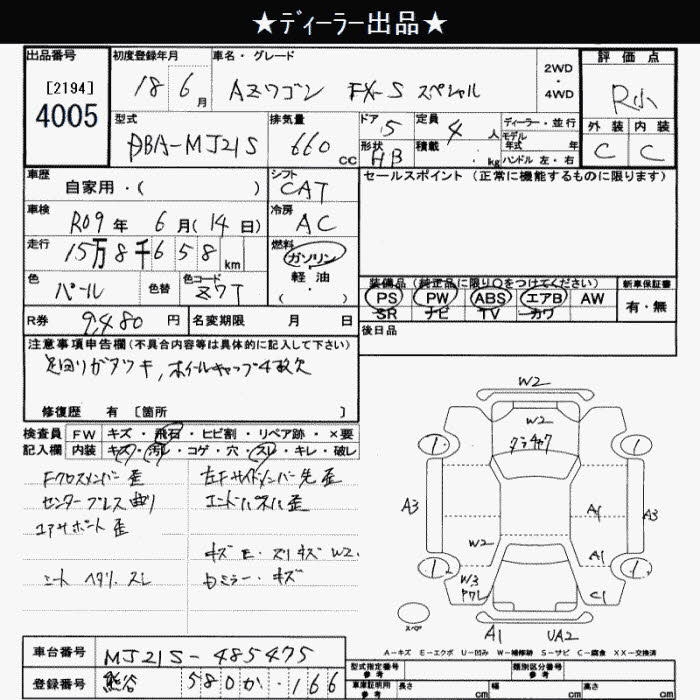 ★ディーラー出品★
出品番号
[2194]
4005
初度登録年月
18 6 月
車名・グレード
AZワゴン FX-S スペシャル
2WD
・
4WD
評価点
R小
外装 内装
C C
型式
DBA-MJ21S
排気量
660 cc
ドア 5
形状 HB
定員 4 人
積載 ・ kg
ディーラー・並行
モデル
年式 年
ハンドル 左・右
車歴
自家用・( )
シフト
CAT
セールスポイント (正常に機能するものに限ります)
車検
R09 年 6 月(14 日)
冷房
AC
走行
15万8千658 km
燃料
ガソリン
軽・油
( ・ )
色
パール
色替
色コード
Z7T
装備品 (純正品に限り○をつけてください)
PS PW ABS エアB AW
SR ナビ TV カワ
新車保証書
有・無
R券 9,480 円
名変期限 月 日
後日品
注意事項申告欄 (不具合内容等は具体的に記入して下さい)
足回りガタツキ, ホイールキャップ4枚欠
修復歴 有 [箇所 ]
検査員 FW キズ・飛石・ヒビ割・リペア跡・×要
記入欄 内装 キズ・汚レ・コゲ・穴・スレ・キレ・破レ
Fクロスメンバー歪
左Fサイドメンバー先歪
センタープレス曲り
エンドパネル歪
コアサポート歪
キズ E・スリキズ W2.
シート ヘタリ. スレ
Dミラー・キズ
W2
W2
クラチャク
1 1
A3 A1 A3
W2 A1
1 1
W3
C1
スペア
A1 UA2
A-キズ E-エクボ U-凹み W-補修跡 S-サビ C-腐食 XX-交換済
車台番号 MJ21S-485475
登録番号 熊谷 580 か ・166
型式指定番号
参考
類別区分番号
参考
車庫証明用
参考
長さ cm 幅 cm 高さ cm